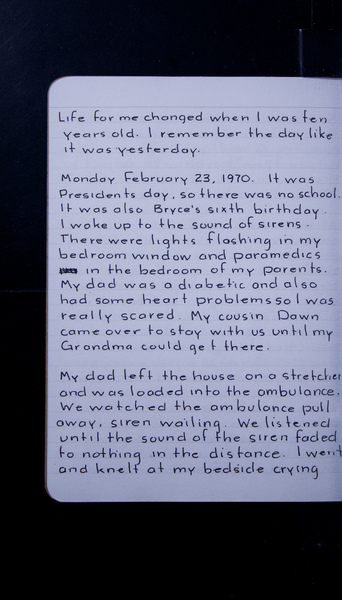 Life for me changed when I was ten
years old. I remember the day like
it was yesterday.
Monday February 23, 1970. It was
Presidents day, so there was no school.
It was also Bryce's sixth birthday.
I woke up to the sound of sirens.
There were lights flashing in my
bedroom window and paramedics
in the bedroom of my parents.
My dad was a diabetic and also
had some heart problems so I was
really scared. My cousin Dawn
came over to stay with us until my
Grandma could get there.
My dad left the house on a stretcher
and was loaded into the ambulance.
We watched the ambulance pull
away, siren wailing. We listened
until the sound of the siren faded
to nothing in the distance. I went
and knelt at my bedside crying